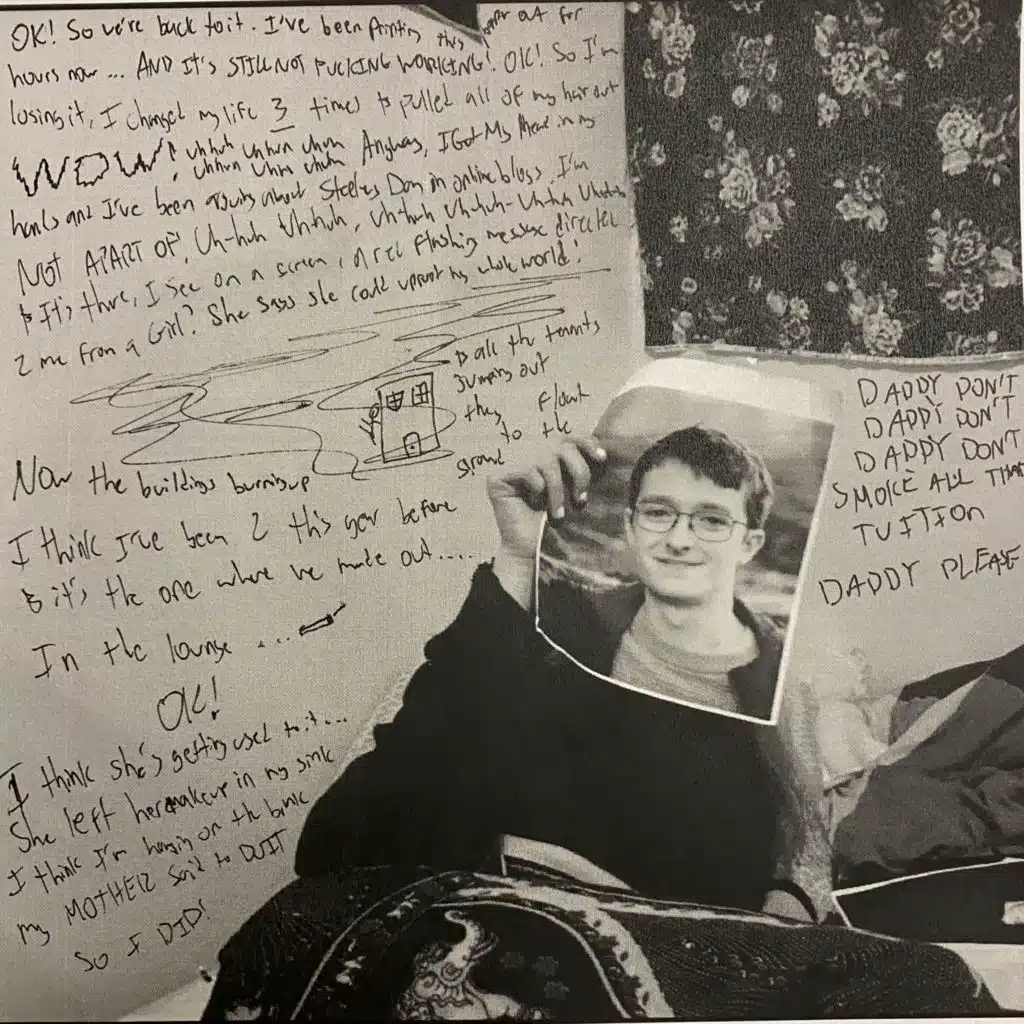 OK! So we're back to it. I've been printing this paper out for
hours now... AND IT'S STILL NOT FUCKING WORKING! OK! So I'm
losing it, I changed my life 3 times & pulled all of my hair out
WOW! Uhhuh Uhhuh Uhhuh Anyways, I Got My Head in my
Uhhuh Uhhuh Uhhuh
hands and I've been arguing about Steelers Dan in online blogs I'm
NOT APART OF, Uh-huh Uh-huh, Uh-huh Uh-huh-Uh-huh Uh-huh
& It's there, I see on a screen, A red flashing message directed
2 me from a Girl? She says she could uproot my whole world!
& all the tenants
Jumping out
they float
to the
ground
Now the buildings burning up
I think I've been 2 this year before
& it's the one where we made out.....
In the lounge ...
OK!
I think she's getting used to it...
She left her makeup in my sink
I think I'm hanging on the brink
my MOTHER said to QUIT
SO I DID!
DADDY DON'T
DADDY DON'T
DADDY DON'T
SMOKE ALL THAT
TUITION
DADDY PLEASE